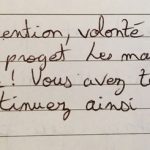 ention, volonté
proget Les ma
! Vous avez t
tinuez ainsi